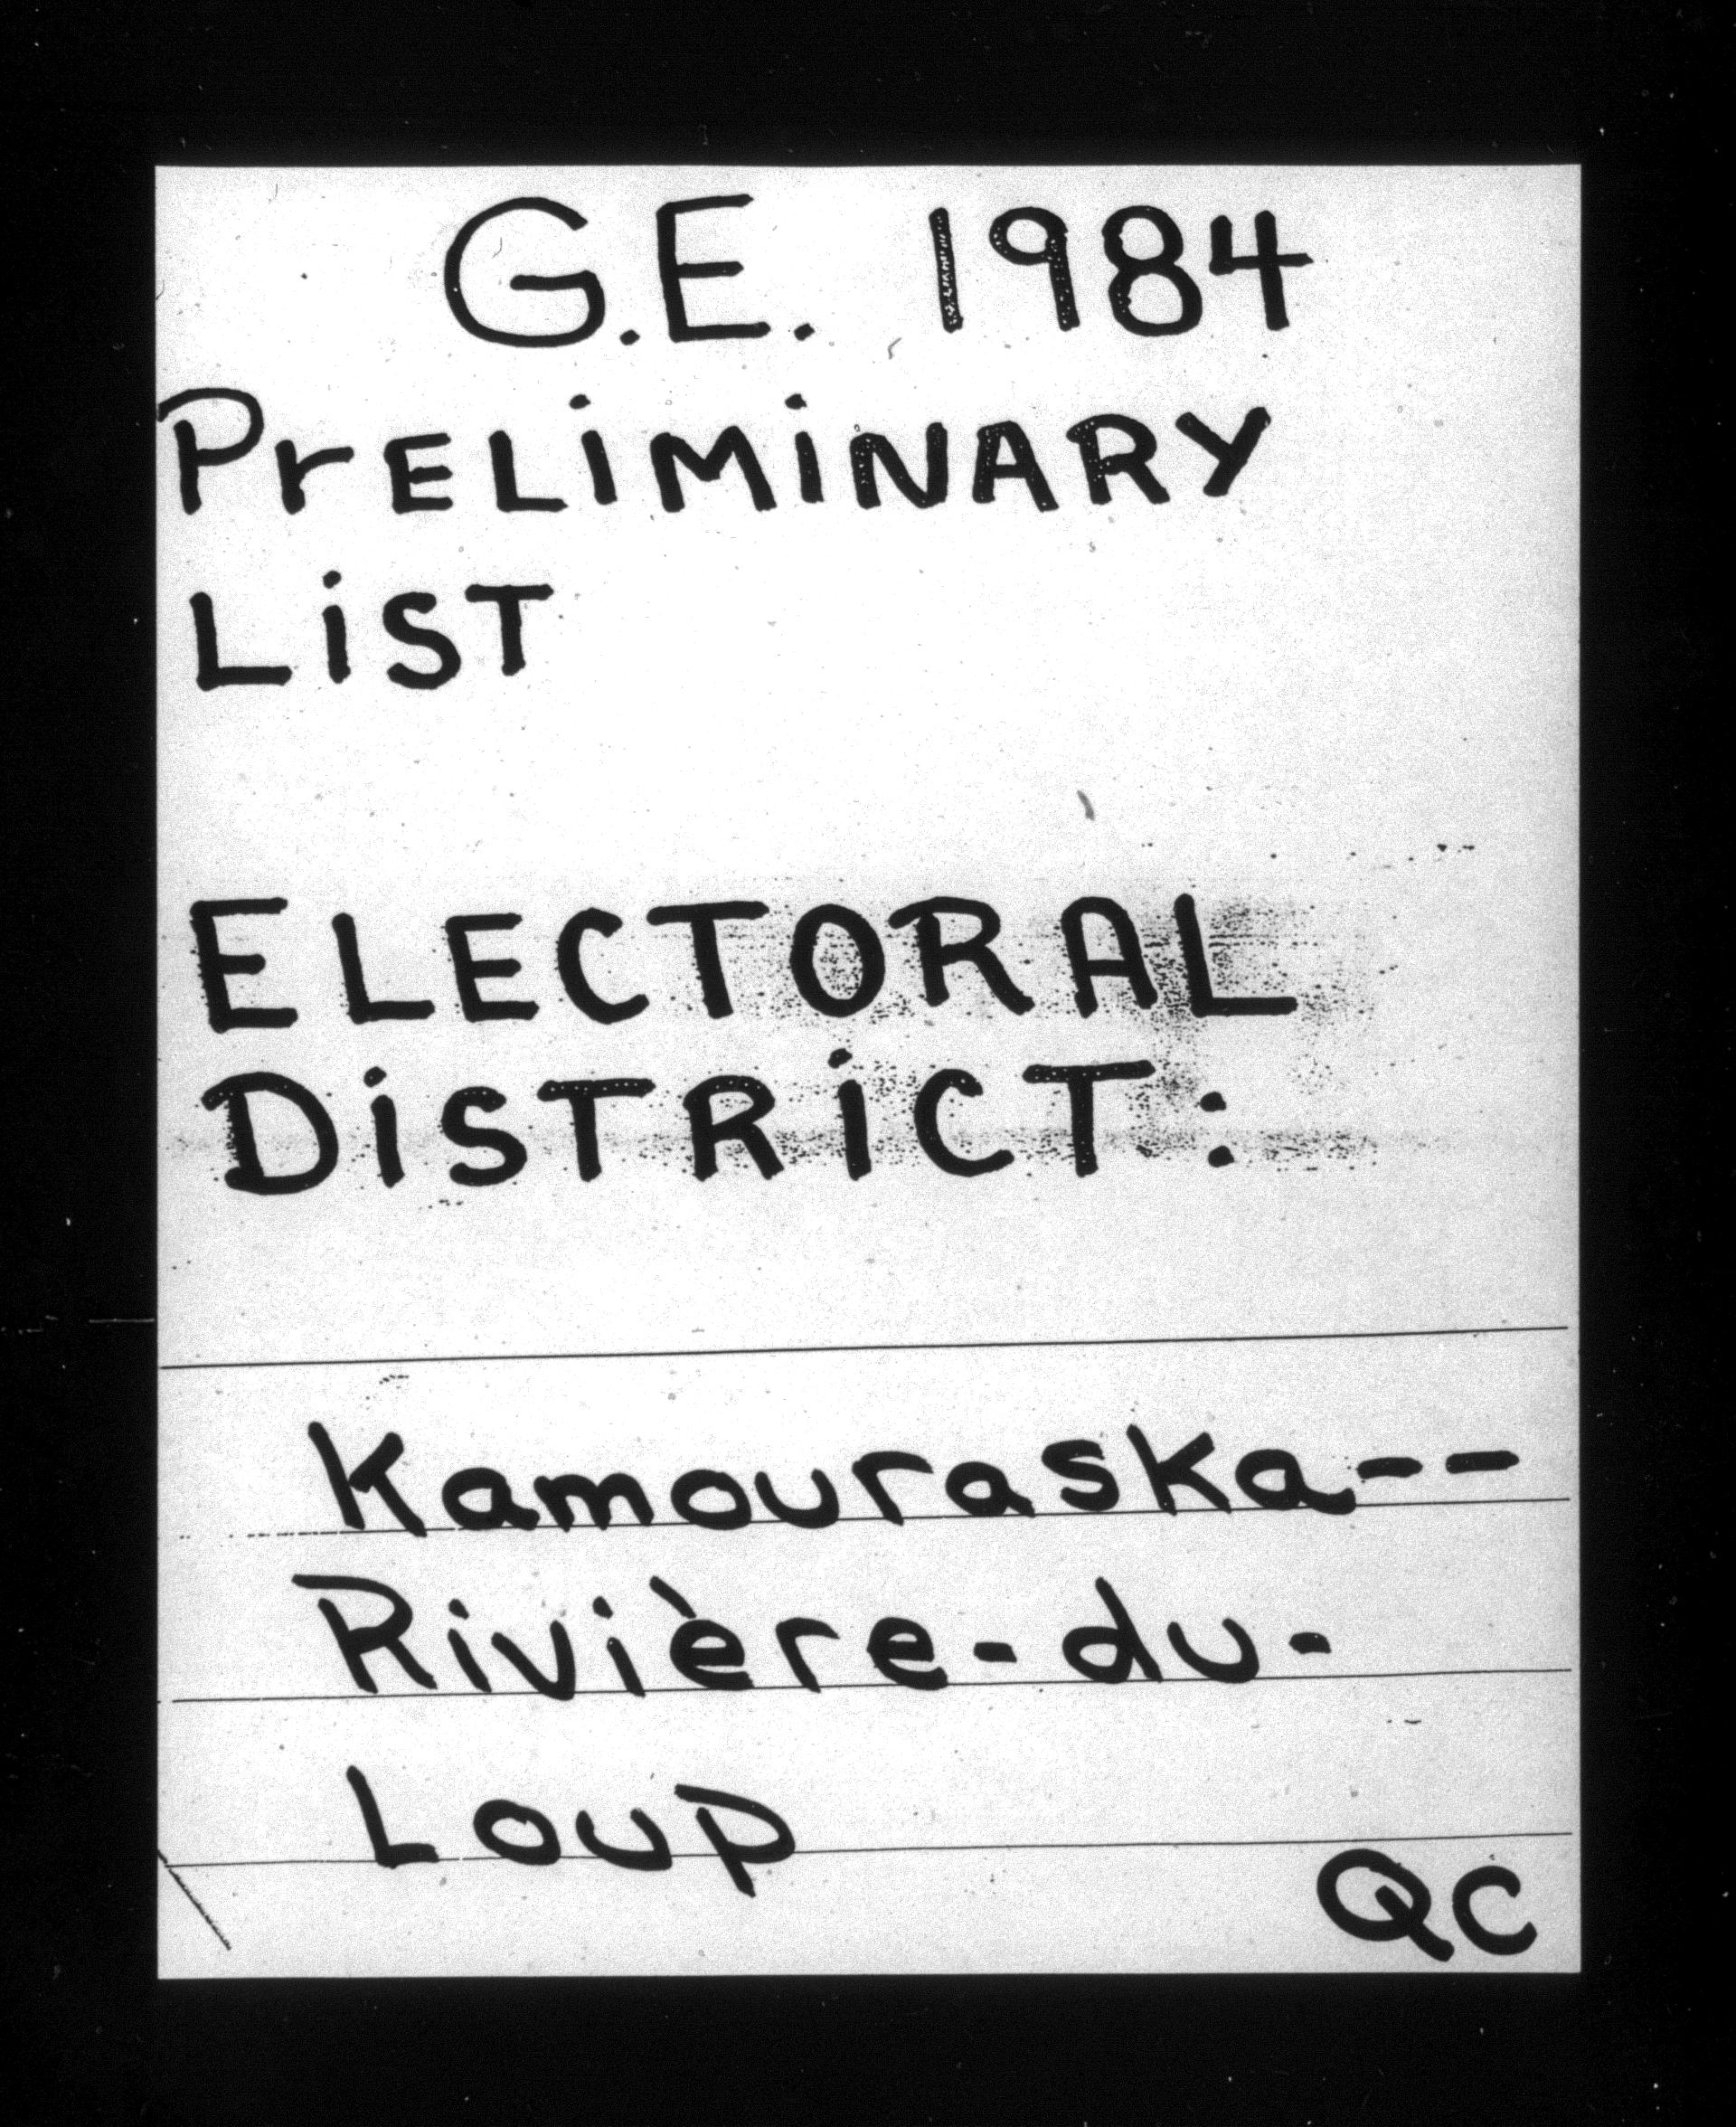 G.E. 1984
PRELIMINARY
LIST
ELECTORAL
DISTRICT:
Kamouraska--
Rivière-du-
Loup
QC